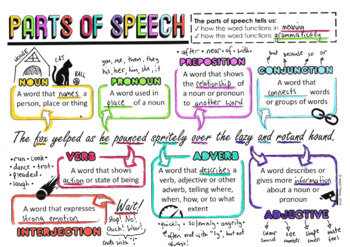 PARTS OF SPEECH
The parts of speech tells us:
✓ how the word functions in meaning
✓ how the word functions grammatically
HOUSE
CAT
BALL
you, me, them, they
his, her, him, she, it
• after • near • of • with
but because so or
NOUN
A word that names a
person, place or thing
PRONOUN
A word used in
place of a noun
PREPOSITION
A word that shows
the relationship of
a noun or pronoun
to another word
CONJUNCTION
A word that
connects words
or groups of words
The fox yelped as he pounced spritely over the lazy and rotund hound.
• run • cook
• dance • trot
• pleaded
• laugh
VERB
A word that shows
action or state of being
ADVERB
A word that describes a
verb, adjective or
other adverb, telling
where, when, how, or
to what extent
A word that describes or
gives more information
about a noun or
pronoun
ADJECTIVE
A word that expresses
strong emotion
INTERJECTION
Wait!
Stop! No!
Ouch! Wow!
ends with "!"
• quickly • solemnly • eagerly
* often end with "ly", but not
always!